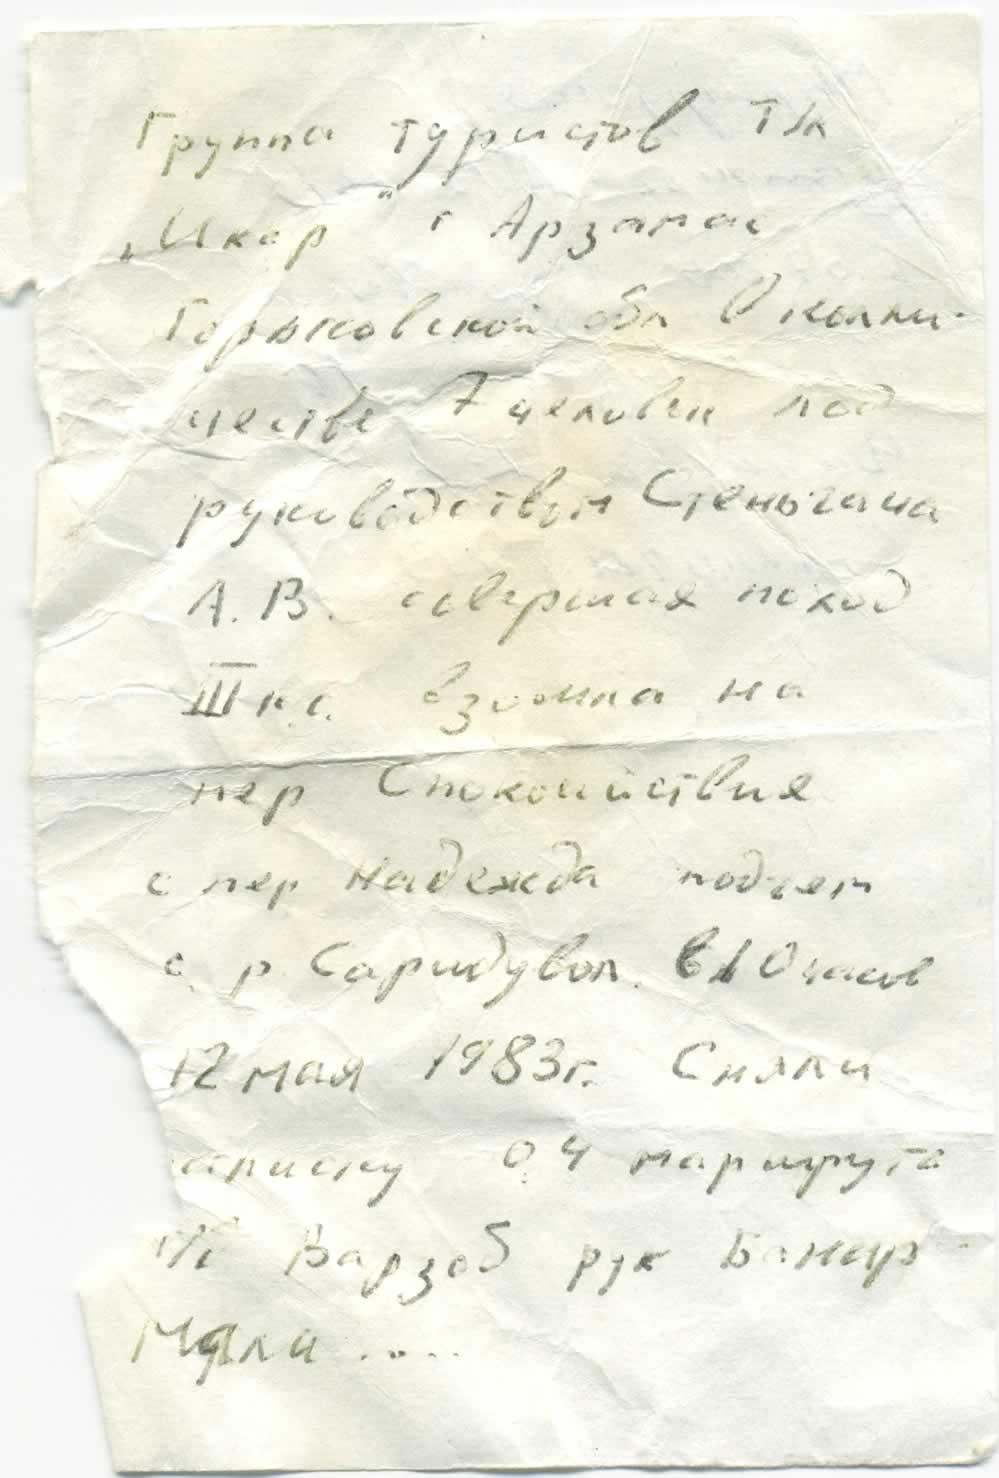 Группа туристов Т/к
„Икар" г Арзамас
Горьковской обл в коли-
честве 7 человек под
руководством Стеньгача
А. В. совершая поход
III к.с. взошла на
пер Спокойствия
с пер Надежда подъем
с р. Саридувол. в 10 часов
12 мая 1983г. Сняли
записку 04 маршрута
Варзоб рук